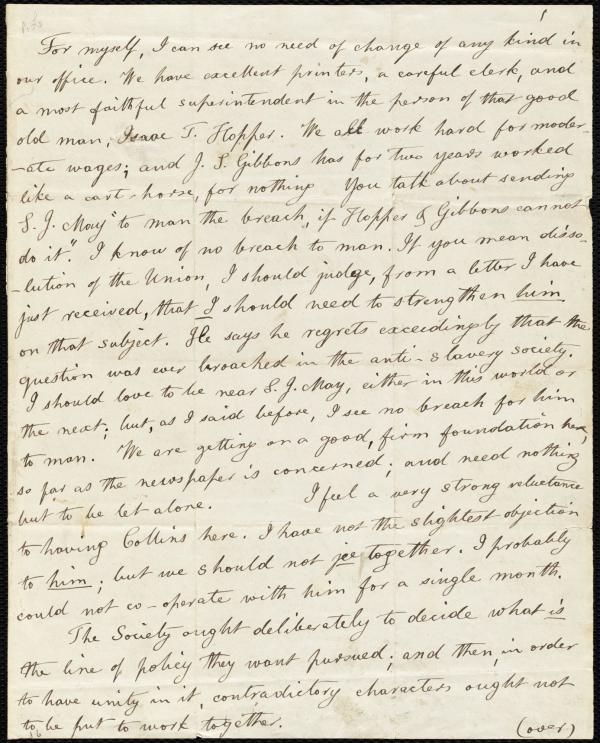 For myself, I can see no need of change of any kind in
our office. We have excellent printers, a careful clerk, and
a most faithful superintendent in the person of that good
old man, Isaac T. Hopper. We all work hard for moder-
-ate wages; and J. S. Gibbons has for two years worked
like a cart-horse, for nothing. You talk about sending
S. J. May "to man the breach, if Hopper & Gibbons cannot
do it." I know of no breach to man. If you mean disso-
-lution of the Union, I should judge, from a letter I have
just received, that I should need to strengthen him
on that subject. He says he regrets exceedingly that the
question was ever broached in the anti-slavery society.
I should love to be near S. J. May, either in this world or
the next; but, as I said before, I see no breach for him
to man. We are getting on a good, firm foundation here,
so far as the newspaper is concerned; and need nothing
but to be let alone. I feel a very strong reluctance
to having Collins here. I have not the slightest objection
to him; but we should not jee together. I probably
could not co-operate with him for a single month.
The Society ought deliberately to decide what is
the line of policy they want pursued; and then, in order
to have unity in it, contradictory characters ought not
to be put to work together. (over)